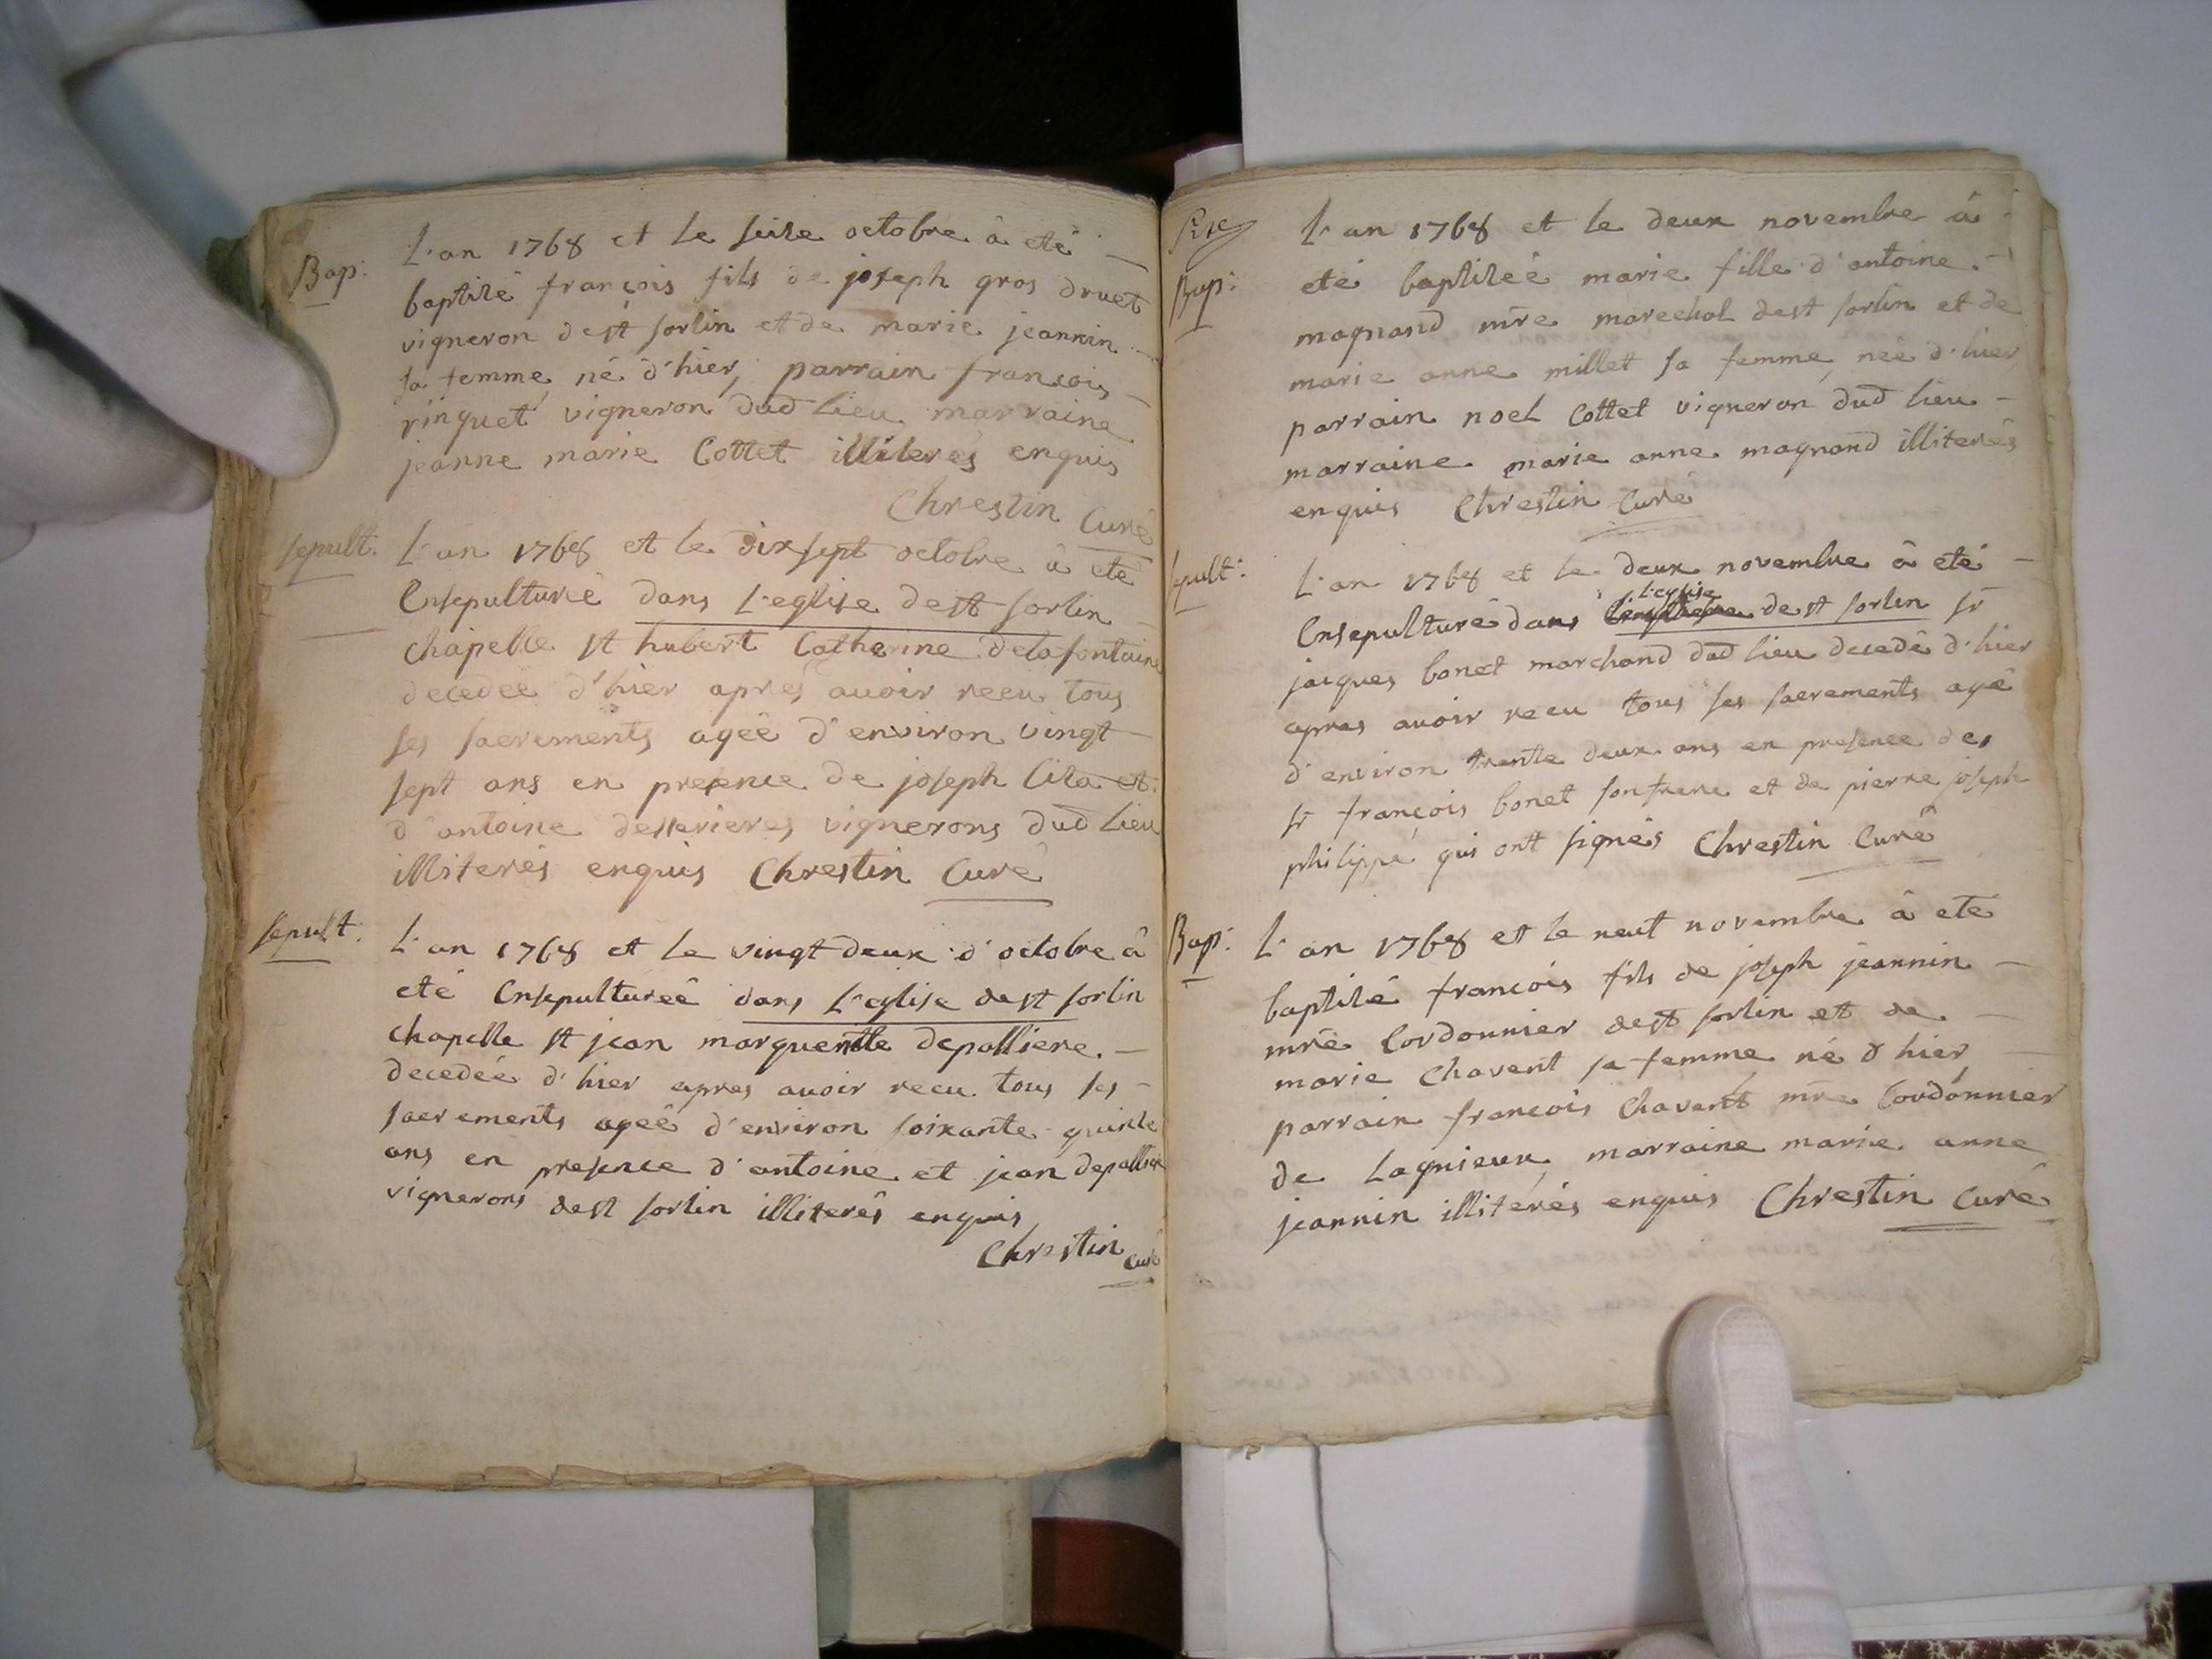 Bap:
L'an 1768 et le seize octobre à eté
baptizé françois fils de joseph gros druet
vigneron de st sorlin et de marie jeannin
sa femme, né d'hier, parrain francois
rinquet vigneron dud lieu marraine
jeanne marie Cottet illiterés enquis
Chrestin Curé
sepult:
L'an 1768 et le dix sept octobre à eté
Ensepulturée dans L'eglise de st sorlin
chapelle st hubert Catherine delafontaine
decedée d'hier apres avoir recu tous
ses sacrements agée d'environ vingt
sept ans en presence de joseph Cila et
d'antoine desserieres vignerons dud Lieu
illiterés enquis Chrestin Curé
sepult:
L'an 1768 et le vingt deux d'octobre à
eté Ensepulturée dans L'eglise de st sorlin
chapelle st jean margueritte depalliere
decedée d'hier apres avoir recu tous ses
sacrements agée d'environ soixante quinze
ans en presence d'antoine et jean depalliere
vignerons de st sorlin illiterés enquis
Chrestin Curé
Bap:
L'an 1768 et le deux novembre à
eté baptizée marie fille d'antoine
magnand mre marechal de st sorlin et de
marie anne millet sa femme, née d'hier
parrain noel Cottet vigneron dud lieu
marraine marie anne magnand illiterés
enquis Chrestin Curé
sepult:
L'an 1768 et le deux novembre à eté
L'eglise
Ensepulturé dans de st sorlin sr
jacques bonet marchand dud lieu decedé d'hier
apres avoir recu tous ses sacrements agé
d'environ trente deux ans en presence des
sr françois bonet son frere et de pierre joseph
philippe qui ont signés Chrestin Curé
Bap:
L'an 1768 et le neuf novembre à eté
baptizé francois fils de joseph jeannin
mre Cordonnier de st sorlin et de
marie Chavent sa femme né d'hier,
parrain francois Chavent mre Cordonnier
de Lagnieux, marraine marie anne
jeannin illiterés enquis Chrestin Curé